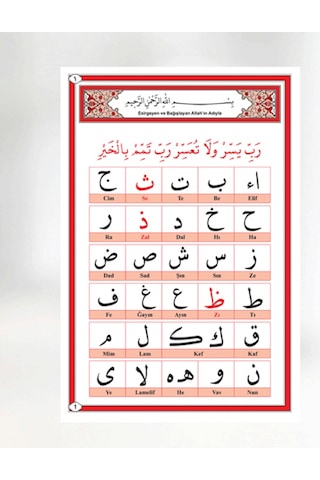 ١
بِسْمِ اللهِ الرَّحْمٰنِ الرَّحِيمِ
Esirgeyen ve Bağışlayan Allah'ın Adıyla
رَبِّ يَسِّرْ وَلَا تُعَسِّرْ رَبِّ تَمِّمْ بِالْخَيْرِ
ا ء ب ت ث ج
Elif Be Te Se Cim
ح خ د ذ ر
Ha Hı Dal Zal Ra
ز س ش ص ض
Ze Sin Şın Sad Dad
ط ظ ع غ ف
Tı Zı Ayın Ğayın Fe
ق ك ل م
Kaf Kef Lam Mim
ن و ه ه لا ى
Nun Vav He Lamelif Ye
1